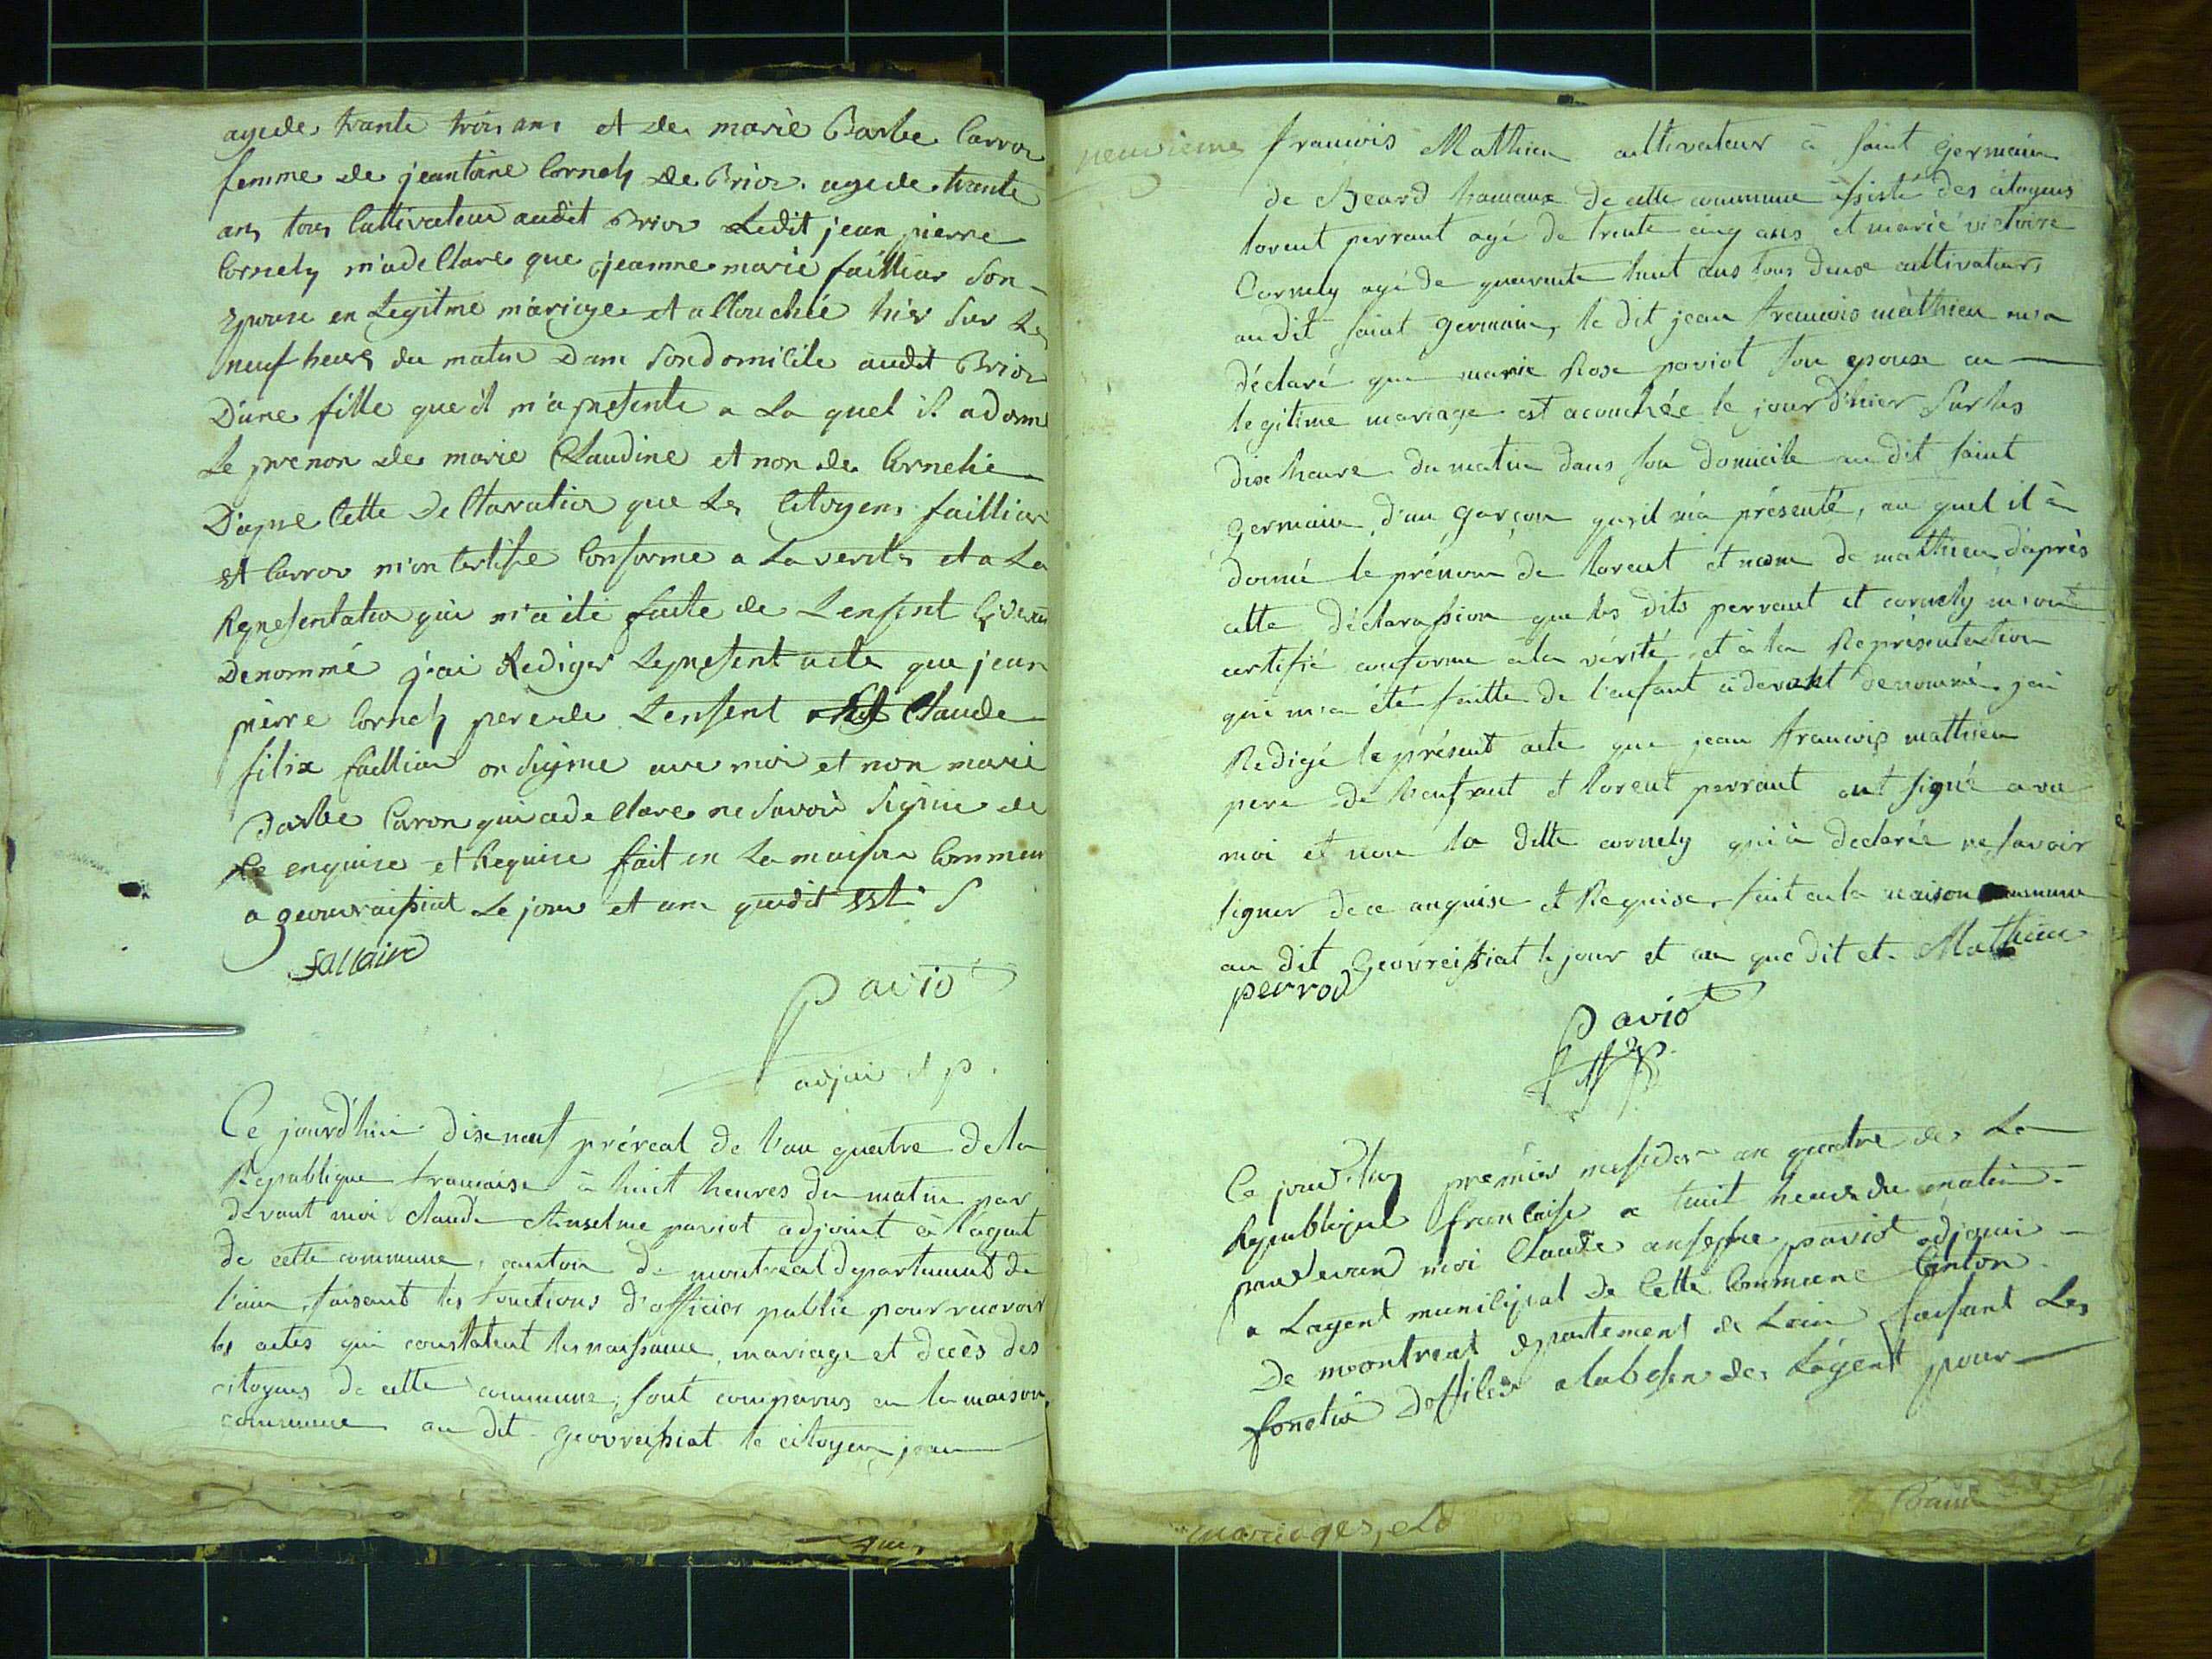 agede trante trois ans et de marie Barbe Carron
femme de jeantoine Cornely de Brion. agede trante
ans tous Cultivateur audit Brion Ledit jean pierre
Cornely m'adeClare que jeanne marie faillior Son
Epouse en Legitme mariage et aCouchée hier Sur Les
neuf heures du matin Dans Sondomicile audit Brion
D'une fille que il m'a presente a La quel il a donné
Le prenon de marie Claudine et non de Cornelie
D'apre Cette deClaration que Les Citoyens faillior
et Carron m'on Certifie Conforme a La verite et a La
Representation qui m'a été faite de L'enfent Cidevan
Denommé j'ai Rediger Lepresent acte que jean
pierre Cornely pere de L'enfent et Claude
filix faillior on Signie ave moi et non marie
Barbe Caron qui adeClare ne Savoir Signie de
Ce enquise et Requise fait en La maison Commun
a geouvraissiat Le jour et an quedit est
fallaire
Paviot
adjoin
Ce jourd'hui dixneuf préreal de l'an quatre de la
Republique francaise à huit heures du matin par
devant moi claude Anselme paviot adjoint à l'agent
de cette commune, canton de montreal departement de
l'ain, faisant les fonctions d'officier public pour recevoir
les actes qui constatent les naissance, mariage et décès des
citoyens de cette commune, sont comparus en la maison
commune au dit geovreissiat le citoyen jean
neuvieme
francois Mathieu cultivateur à saint germain
de Beard hamaux de cette commune assisté des citoyens
lorent perraut agé de trente cinq ans et marie victoire
Cornely agé de quarante huit ans tous deux cultivateurs
au dit saint germain, le dit jean francois mathieu m'a
déclaré que marie Rose paviot son epouse en
legitime mariage est acouchée le jour d'hier sur les
dix heure du matin dans son domicile au dit saint
germain d'un garçon qu'il m'a présenté, au quel il à
donné le prénom de lorent et nom de mathieu d'après
cette déclarassion que les dits perraut et cornely m'ont
certifié conforme à la vérité et à la Représentation
qui m'a été faitte de l'enfant cidevant denommé j'ai
Redigé le présent acte que jean francois mathieu
pere de l'enfant et lorent perraut ont signé avec
moi et non la ditte cornely qui à declarée ne savoir
signer de ce enquise et Requise, fait en la maison commune
au dit Geovreissiat le jour et an que dit et. Mathieu
perrod
Paviot
Ce jourd'huy premier messidor an quatre de La
Republique francaise a huit heure du matin
pardevand moi Claude anselme paviot adjoin
a Lagent municipal de Cette Commune Canton
De montreal departement de Lain faisant Les
fonction dofficier alabsen de Lágent pour
mariages,